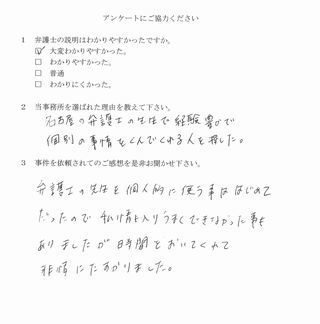 アンケートにご協力ください
1 弁護士の説明はわかりやすかったですか。
☑ 大変わかりやすかった。
□ わかりやすかった。
□ 普通
□ わかりにくかった。
2 当事務所を選ばれた理由を教えて下さい。
名古屋の弁護士の先生で経験豊かで
個別の事情をくんでくれる人を探した。
3 事件を依頼されてのご感想を是非お聞かせ下さい。
弁護士の先生を個人的に使う事ははじめて
だったので 私情も入りうまくできなかった事も
ありましたが 時間をおいてくれて
非常にたすかりました。